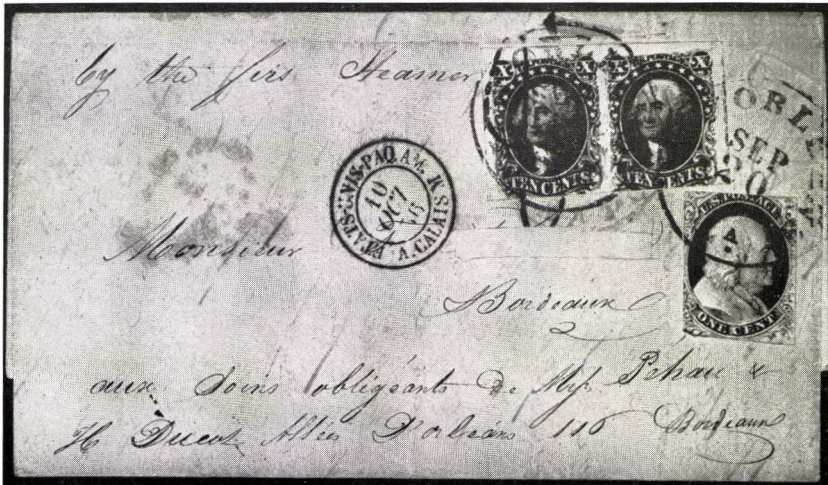 by the firs Steamer
X X X X
TEN CENTS TEN CENTS
ORLE
SEP
20
ETATS-UNIS-PAQ. AM. A. CALAIS K
10
OCT
U.S. POSTAGE
ONE CENT
Monsieur
Bordeaux
aux soins obligeants de Pehau &
H Ducot Allées D'orléans 116 Bordeaux